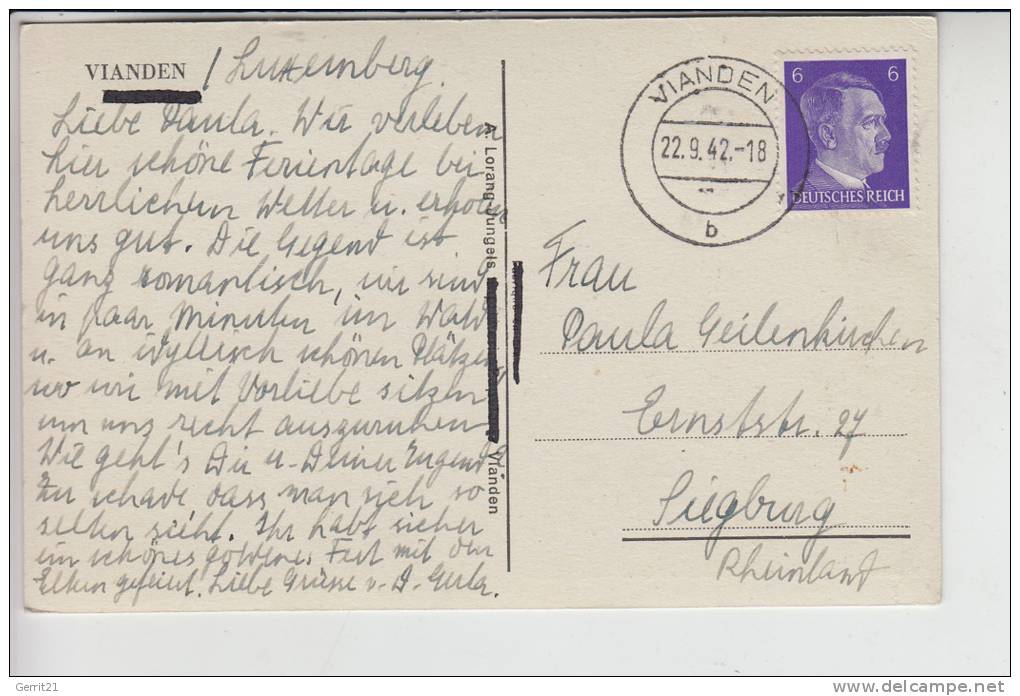 VIANDEN / Luxemberg.
Liebe Paula. Wir verleben
hier schöne Ferientage bei
herrlichem Wetter u. erholen
uns gut. Die Gegend ist
ganz romantisch, wir sind
in paar Minuten im Wald
u. an idyllisch schönen Plätzen,
wo wir mit Vorliebe sitzen
um uns recht auszuruhen
Wie geht's Dir u. Deiner Jugend?
Zu schade, dass man sich so
selten sieht. Ihr habt sicher
ein schönes goldenes Fest mit den
Eltern gefeiert. Liebe Grüsse v. D. Gerta.
A. Lorang-Jungels
Vianden
VIANDEN
22.9.42.-18
b
6 6
DEUTSCHES REICH
Frau
Paula Geilenkirchen
Ernststr. 27
Siegburg
Rheinland
Gerrit21
www.delcampe.net